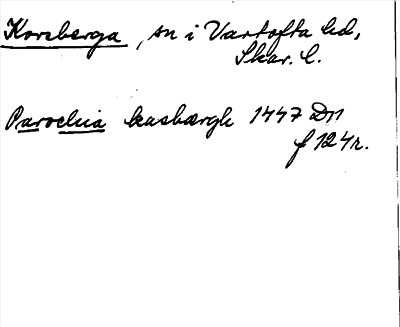 Korsberga, sn i Vartofta hd,
Skar. l.
Parochia kasbærgh 1447 Dn
f 124r.